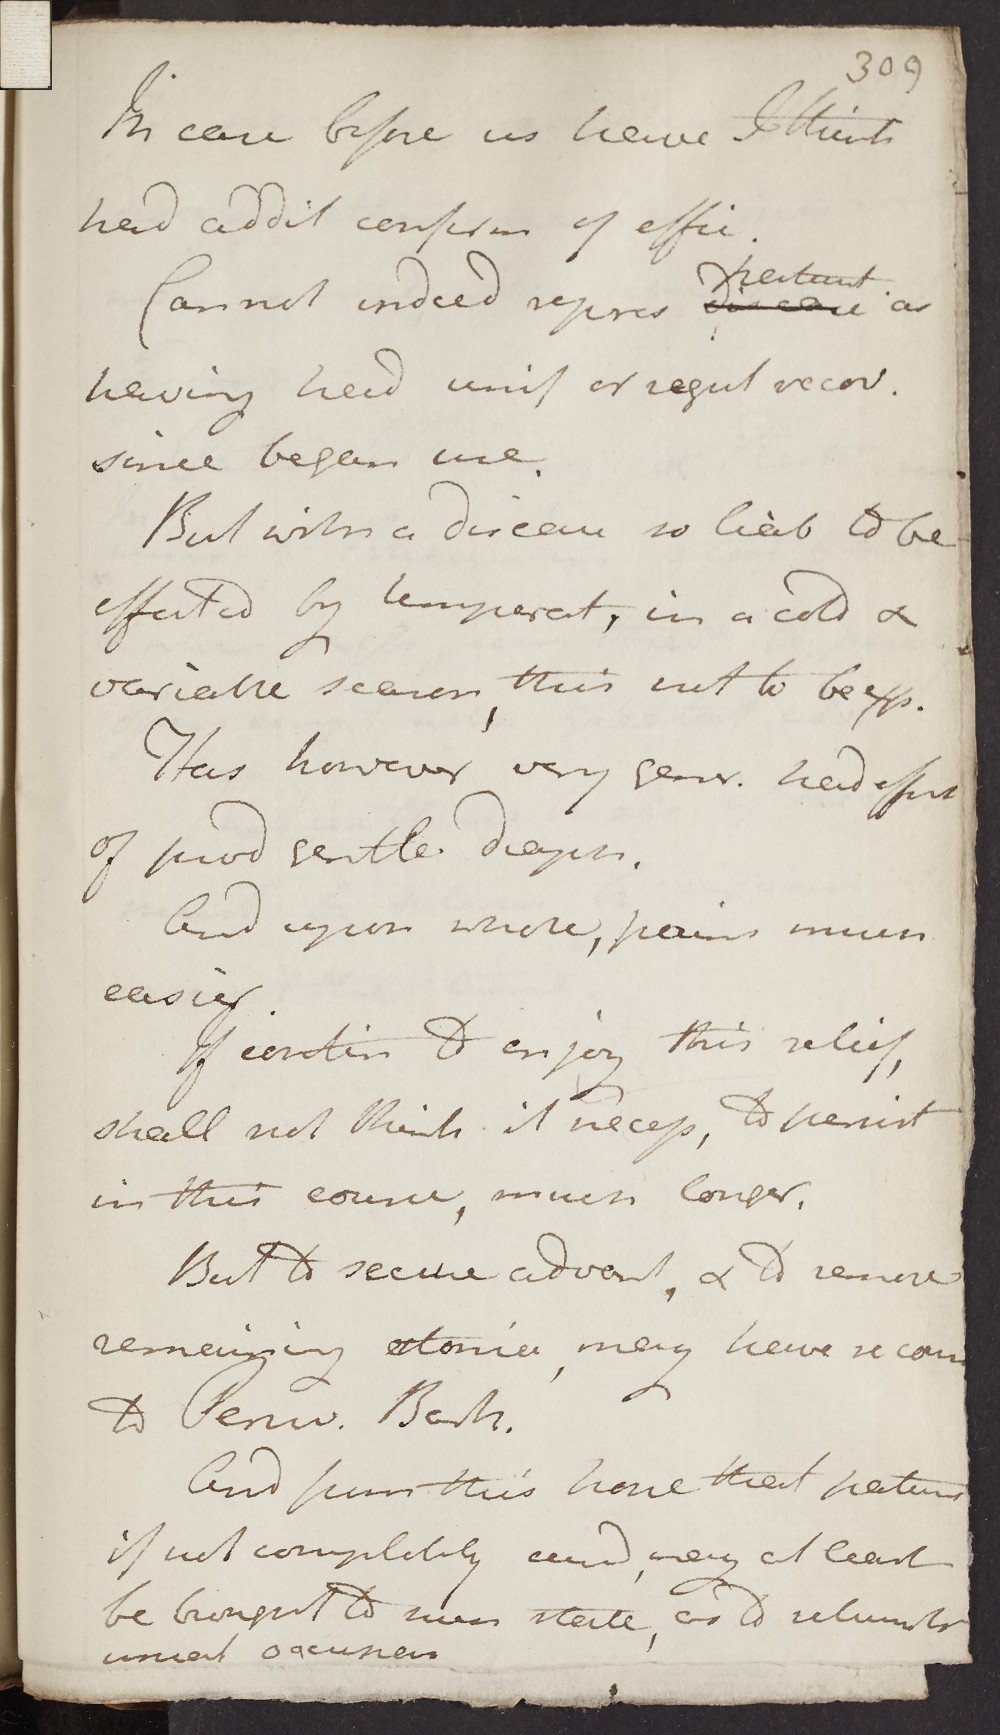 309
In case before us have I think
had addit confirm of effic.
patient
Cannot indeed repres disease as
having had unif or regul recov.
since began use.
But when a disease so liab to be
affected by temperat, in a cold &
variable season, this not to be exp.
Has however very gener. had effect
of prod gentle diaph.
And upon whole, pains much
easier.
If contin to enjoy this relief,
shall not think it necess, to persist
in this course, much longer.
But to secure advant, & to remove
remaining atonia, may have recour
to Peruv. Bark.
And from this hope that patient
if not completely cured, may at least
be brought to such state, as to return to
usual occupation